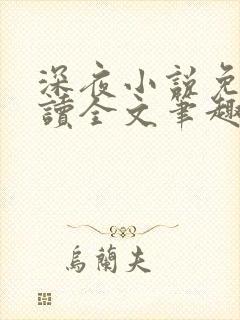 深夜小說免
讀全文筆趣
烏蘭夫